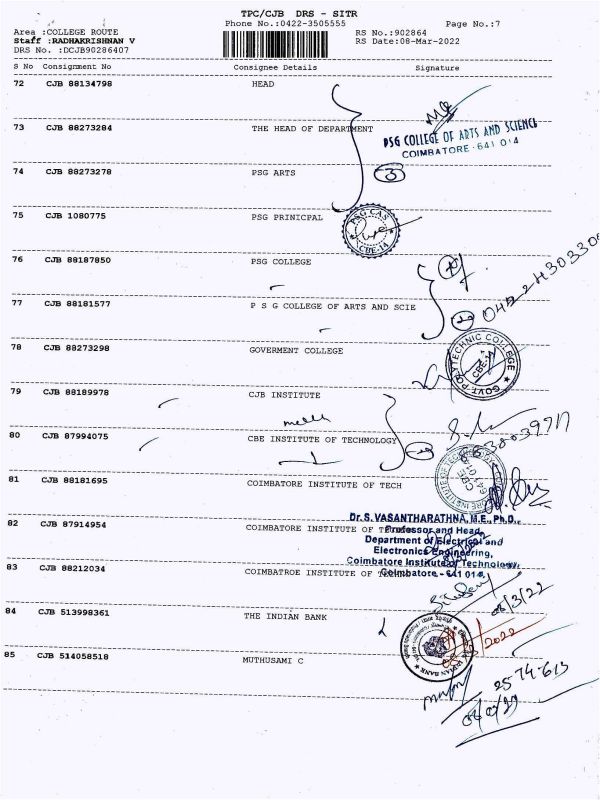 TPC/CJB DRS - SITR
Phone No.:0422-3505555 Page No.:7
Area :COLLEGE ROUTE RS No.:902864
Staff :RADHAKRISHNAN V RS Date:08-Mar-2022
DRS No. :DCJB90286407
S No Consignment No Consignee Details Signature
72 CJB 88134798 HEAD
73 CJB 88273284 THE HEAD OF DEPARTMENT
PSG COLLEGE OF ARTS AND SCIENCE
COIMBATORE - 641 014
74 CJB 88273278 PSG ARTS 3
75 CJB 1080775 PSG PRINICPAL
PSG CAS
CBE-14
76 CJB 88187850 PSG COLLEGE
77 CJB 88181577 P S G COLLEGE OF ARTS AND SCIE
78 CJB 88273298 GOVERMENT COLLEGE
GOVT. POLYTECHNIC COLLEGE
CBE-14
79 CJB 88189978 CJB INSTITUTE
80 CJB 87994075 CBE INSTITUTE OF TECHNOLOGY
81 CJB 88181695 COIMBATORE INSTITUTE OF TECH
CBE
641 014
Dr.S.VASANTHARATHNA, M.E., Ph.D.,
82 CJB 87914954 COIMBATORE INSTITUTE OF
Professor and Head,
Department of Electrical and
Electronics Engineering,
Coimbatore Institute of Technology,
Coimbatore - 641 014.
83 CJB 88212034 COIMBATROE INSTITUTE OF
08/3/22
84 CJB 513998361 THE INDIAN BANK
85 CJB 514058518 MUTHUSAMI C